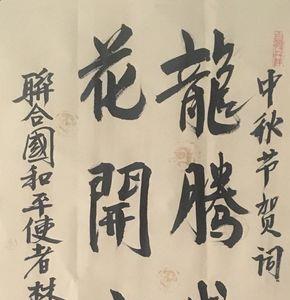 中秋节贺词
龍腾
花開
聯合國和平使者林